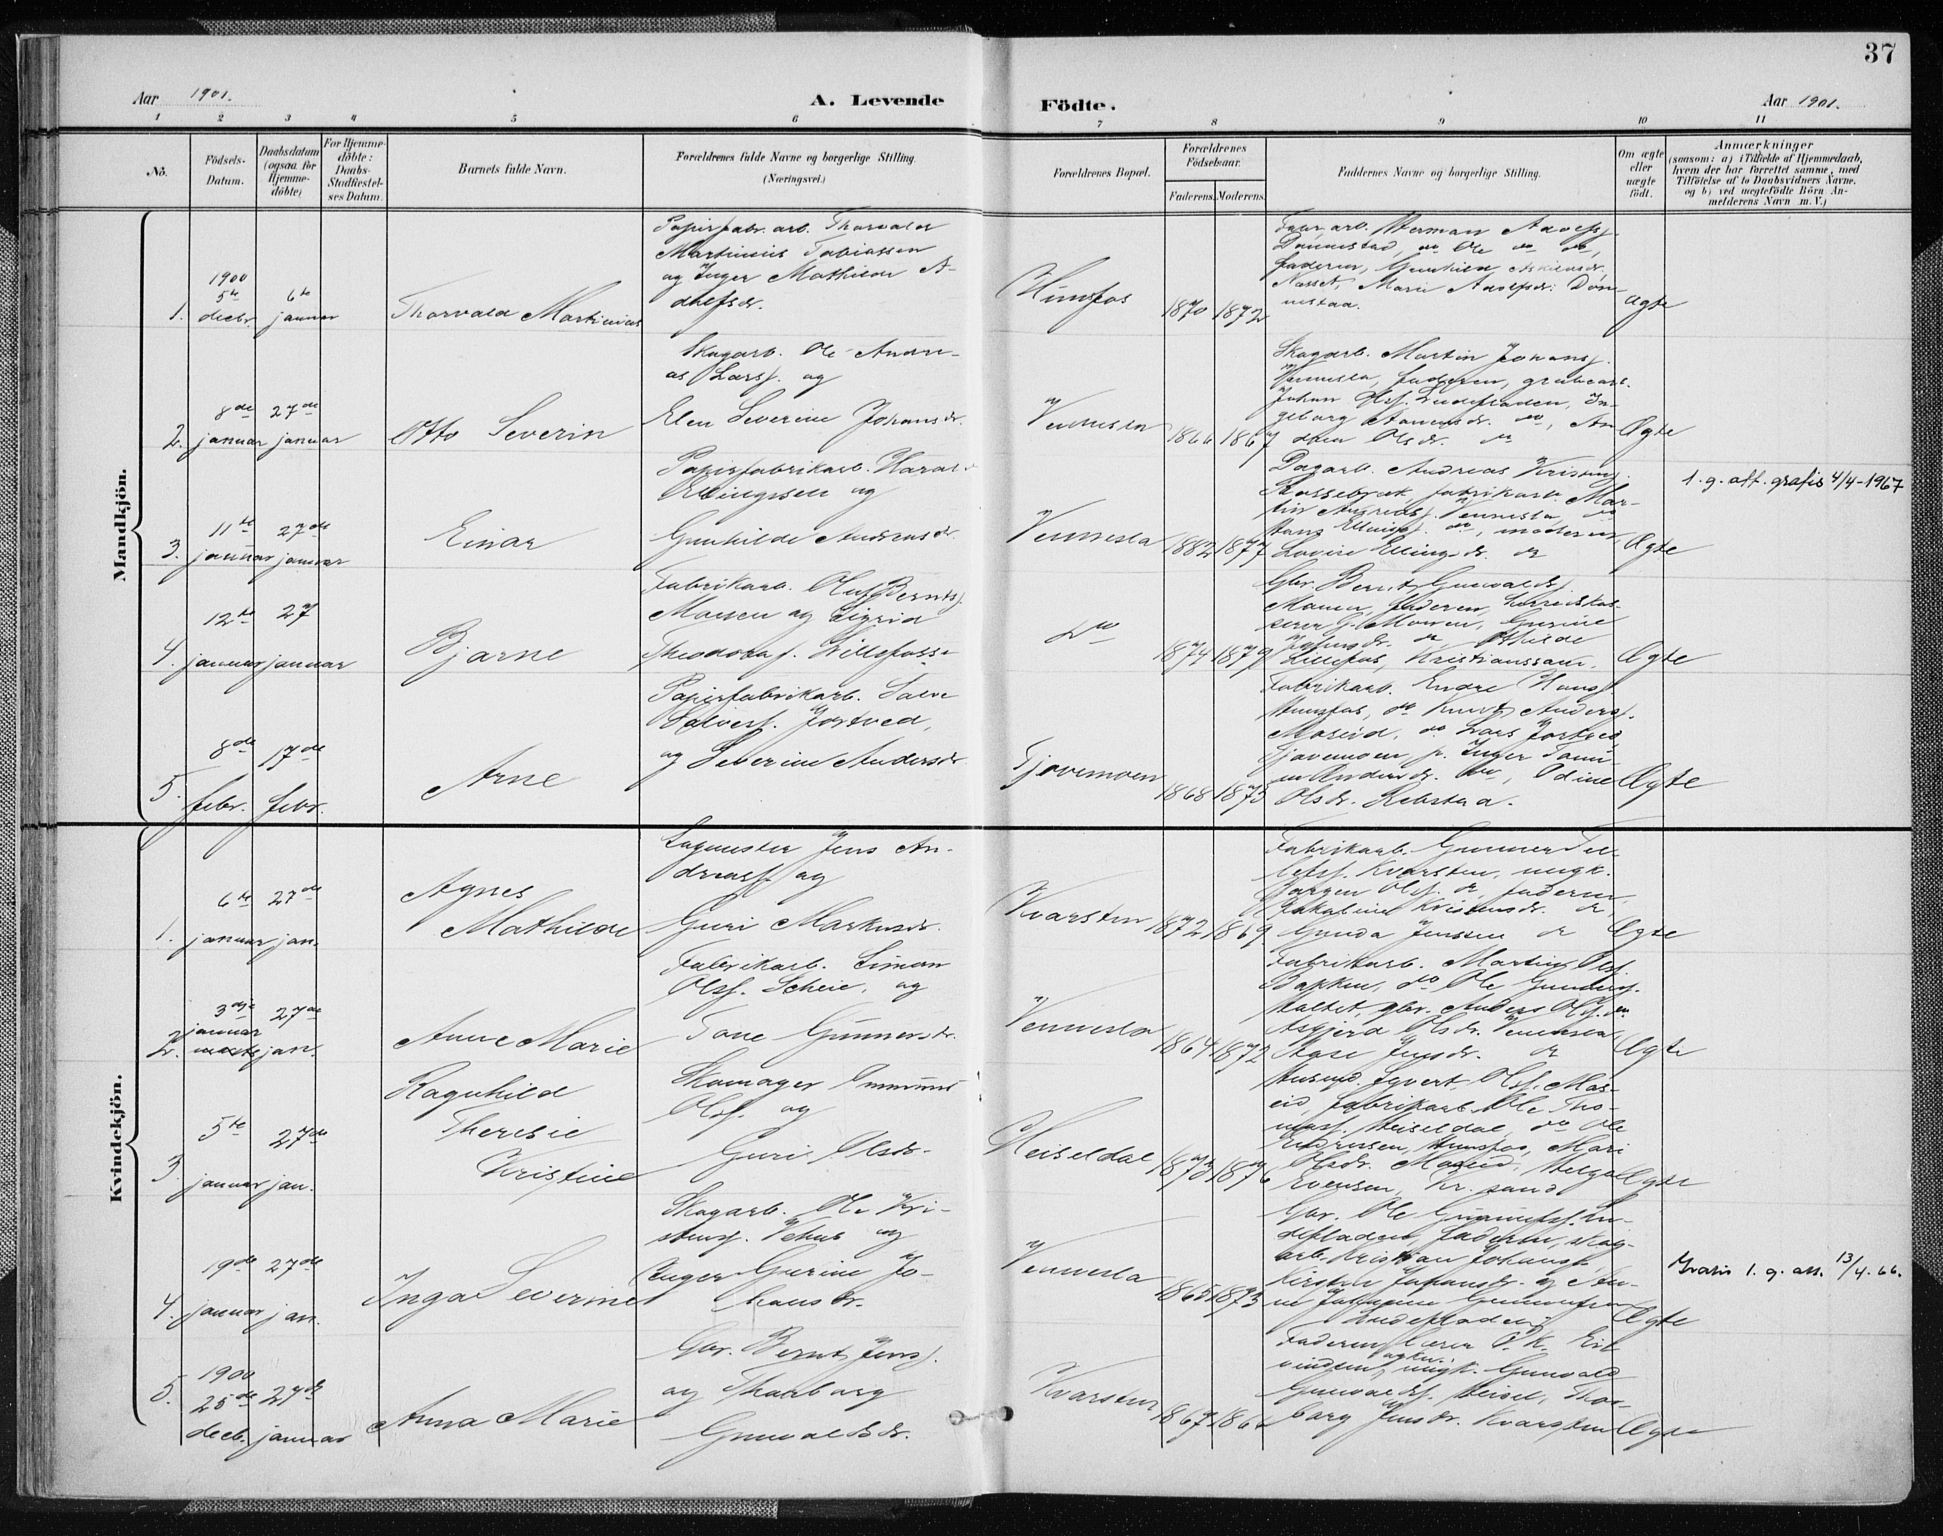 37
Aar 1901. A. Levende Födte. Aar 1901.
1 2 3 4 5 6 7 8 9 10 11
No.
Födsels-
Datum.
Daabsdatum
(ogsaa for
Hjemme-
döbte)
For Hjemme-
döbte:
Daabs-
Stadfæstel-
ses Datum.
Barnets fulde Navn.
Forældrenes fulde Navne og borgerlige Stilling.
(Næringsvei.)
Forældrenes Bopæl.
Forældrenes
Födselsaar.
Faderens. Moderens.
Faddernes Navne og borgerlige Stilling.
Om ægte
eller
uægte
födt.
Anmærkninger
(saasom: a) i Tilfælde af Hjemmedaab,
hvem der har forrettet samme, med
Tilföielse af to Daabsvidners Navne,
og b) ved uægtefödte Börn An-
melderens Navn m. V.)
Mandkjön.
1.
1900
5te
decbr.
6te
januar
Thorvald Martinius
Papirfabr. arb. Thorvald
Martinius Tobiassen
og Inger Mathilde A-
dolfsdr.
Hunsfos
1870 1872
Fabr. arb. Herman Adolfs.
Dønnestad, do Ole do do,
faderen, Gunhild
Marie Adolfsdr. Døn-
nestad.
ægte
2.
8de
januar
27de
januar
Otto Severin
Skogarb. Ole Andre-
as Larss. og
Elen Severine Johansdr.
Vennesla
1866 1867
Skogarb. Martin Johans.
Vennesla, faderen,
Johan Olsf. Lindefladen, In-
geborg do, An
Olsdr. do
Ægte
3.
11te
januar
27de
januar
Einar
Papirfabrikarb. Harald
Ellingsen og
Gunhilde Andreasdr.
Vennesla
1882 1877
Dagarb. Andreas
fabrikarb. Mar-
tin Andreas. Vennesla do
Hans Ellings. do, moderen,
Lovise Ellingsdr. do
Ægte
1. g. att. gratis 4/4-1967
4.
12te
januar
27
januar
Bjarne
Fabrikarb. Oluf Bernts.
Moseen og Sigrid
Theodora f. Lillefosse
do
1874 1879
Gbr. Bernt Gunvalds.
faderen, herredskas-
serer J. Moseen, Gurine
do Othilde
Lillefos, Kristianssand.
Ægte
5.
8de
febr.
17de
febr.
Arne
Papirfabrikarb. Salve
Salvesf. Jortved,
og Severine Andersdr.
Tjovemoen
1868 1875
Fabrikarb. Endre Hansf.
Hunsfos, do Knut Andersf.
Moseid, do Lars Jortved,
Tjovemoen, p. Inger Tomi-
ne Andersdr. do, Odine
Olsdr. Rebstad.
Ægte
Kvindekjön.
1.
6te
januar
27de
jan.
Agnes
Mathilde
Sagmester Jens An-
dreass. og
Guri Markusdr.
Kvarsten
1872 1869
Fabrikarb. Gunner Tel-
lefsf. Kvarsten, ungk.
Jørgen Olsf. do, faderen,
Jakobine Kristensdr. do,
Gunda Jenssen do
Ægte
2.
3dje
januar
27de
jan.
Anne Marie
Fabrikarb. Simon
Olsf. Scheie, og
Tone Gunnersdr.
Vennesla
1864 1872
Fabrikarb. Martin Olsf.
Bakken, do Ole Gunders.
gbr. Anders Olsf. do
Asgjerd Olsdr. Vennesla
Aase Jensdr. do
Ægte
3.
5te
januar
27de
jan.
Ragnhild
Theresie
Kristine
Skomager Ommund
Olsf. og
Guri Olsdr.
Heiseldal
1873 1876
Husmd. Syvert Olsf. Mos-
eid, fabrikarb. Ole Tho-
masf. Heiseldal, do Ole
Endresen, Hunsfos, Mari
Olsdr. Moseid, Helga
Evensen, Kr.sand
Ægte
4.
19de
januar
27de
jan.
Inga Severine
Skogarb. Ole Kri-
stensf. Vehus og
Inger Gurine Jo-
hansdr.
Vennesla
1865 1873
Gbr. Ole Lin-
defladen, faderen, skog-
arb. Kristian Johansf.
Kirsten Johansdr. do An-
ne
Lindefladen
Ægte
Gratis 1. g. att. 13/4.66.
5.
1900
25de
decb.
27de
januar
Anna Marie
Gbr. Bernt Jens.
og Thorborg
Gunvaldsdr.
Kvarsten
1867 1866
Faderen, lærer O. K. Ei-
vindsen, ungk. Gunvald
Gunvaldsf. Heisel, Thor-
borg Jensdr. Kvarsten
Ægte